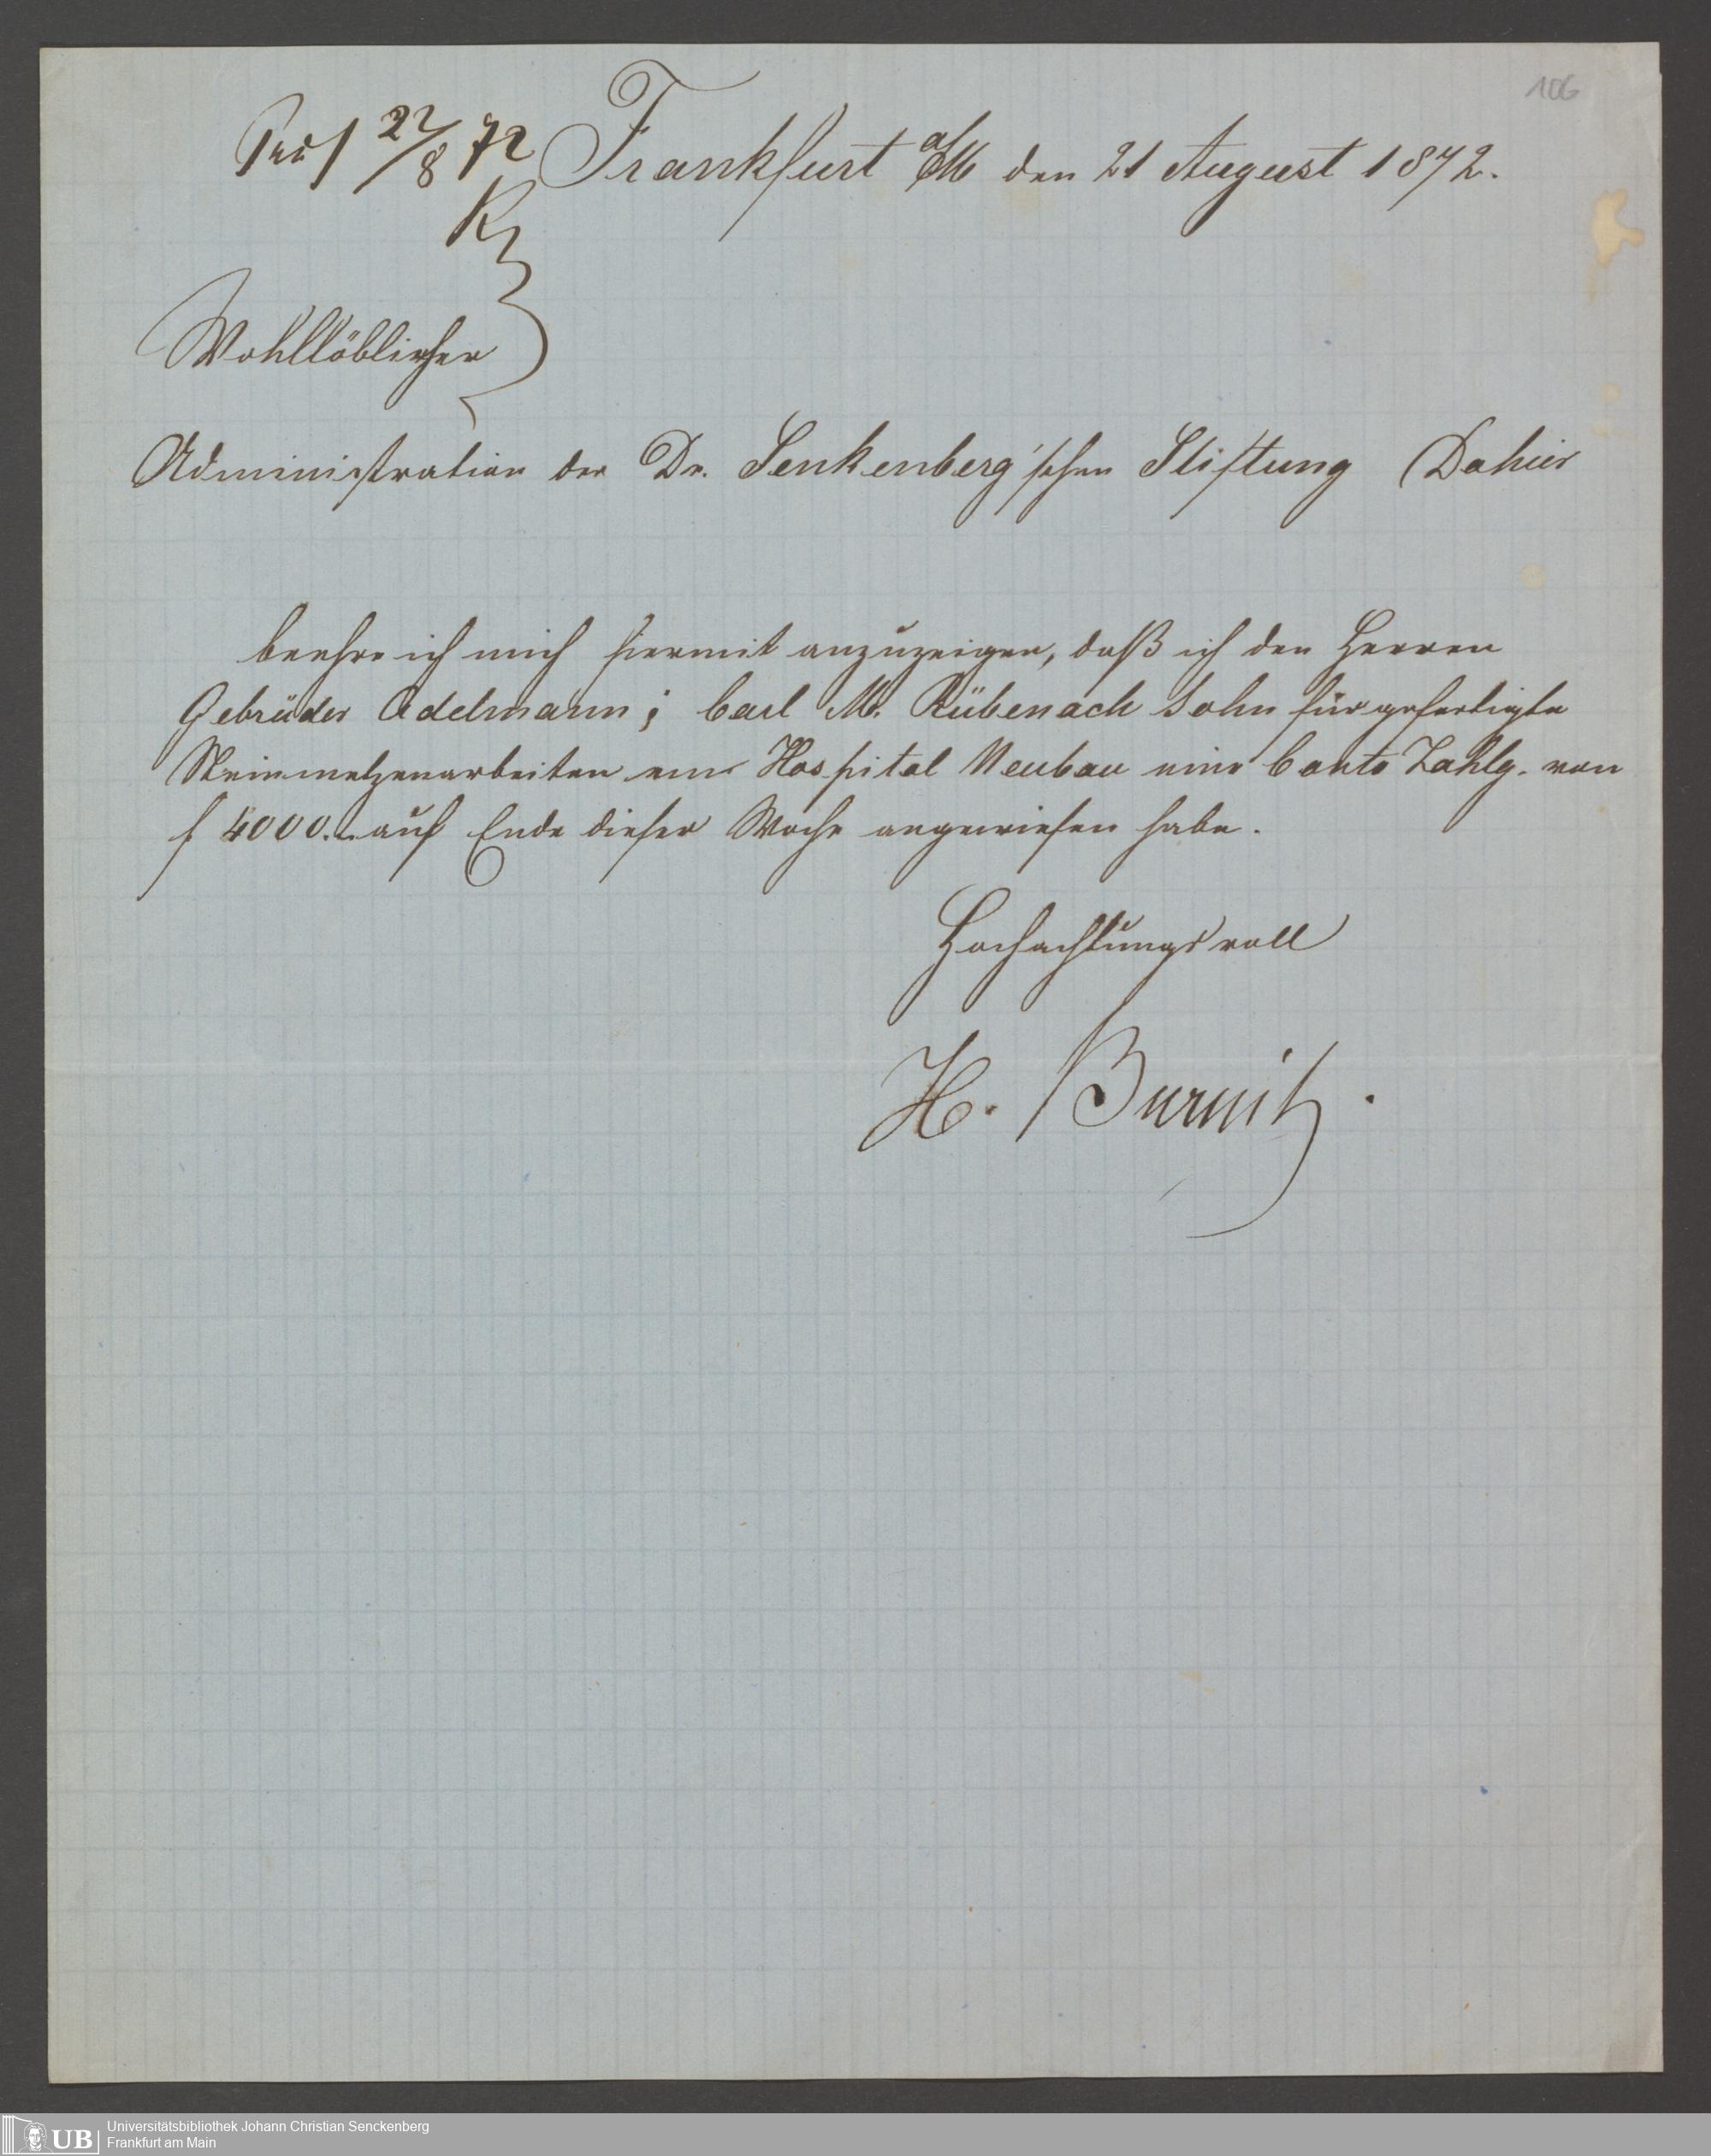 106
22/8 72
Frankfurt a/M den 21 August 1872.
Wohllöblicher
Administration der Dr. Senkenberg'schen Stiftung Dahier
beehre ich mich hiermit anzuzeigen, daß ich den Herren
Gebrüder Adelmann; Carl M. Rübenach Sohn für gefertigte
Steinmetzenarbeiten am Hospital Neubau eine Conto Zahlg. von
f 4000.. auf Ende dieser Woche angewiesen habe.
Hochachtungsvoll
H. Burnitz.
UB
Universitätsbibliothek Johann Christian Senckenberg
Frankfurt am Main